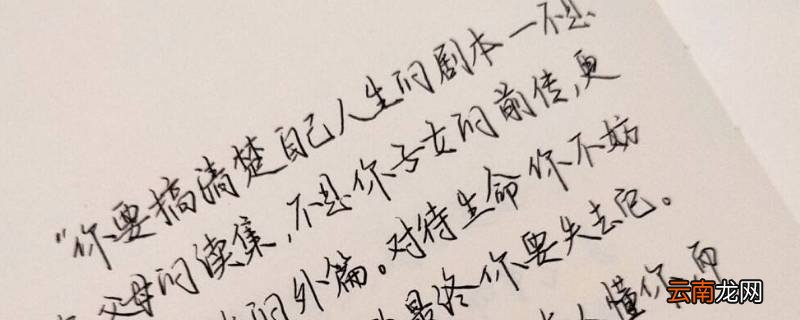 “你要搞清楚自己人生的剧本一不是
父母的续集,不是你子女的前传,更
的外篇。对待生命你不妨
最终你要失去它。
人懂你,而
云南龙网